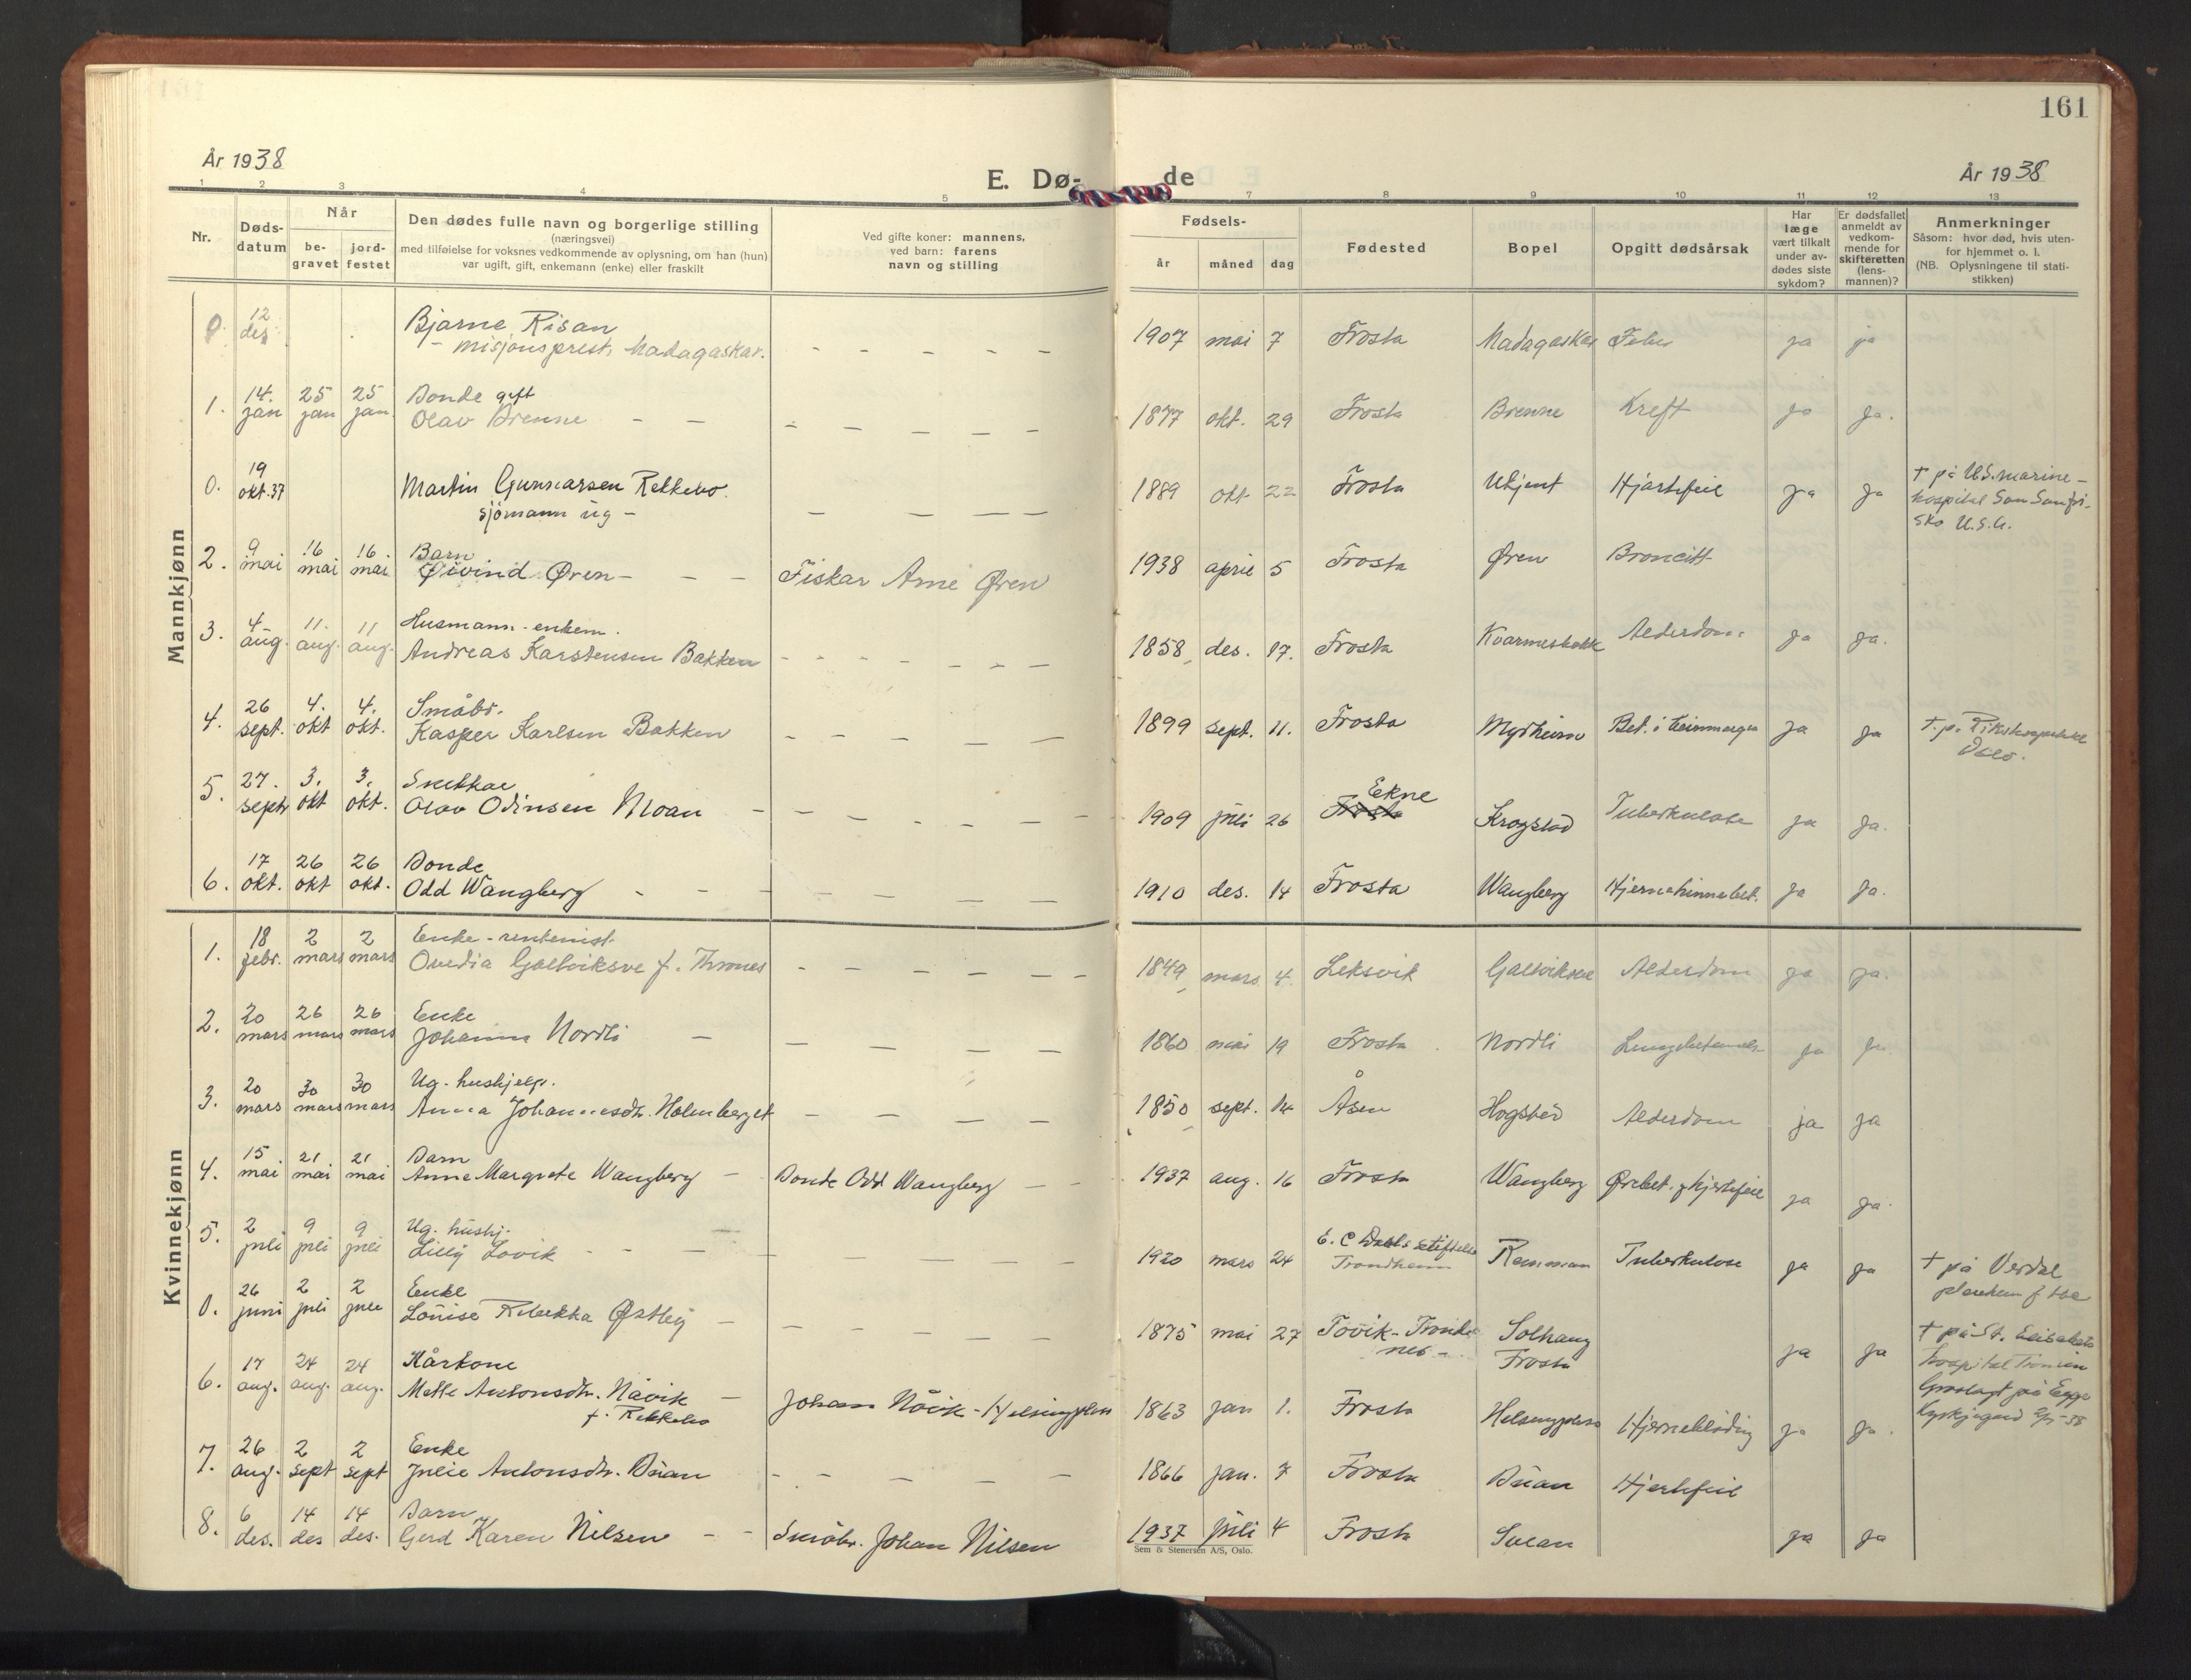 161
År 1938
E. Dø-
de
År 1938
1 2 3 4 5 7 8 9 10 11 12 13
Nr.
Døds-
datum
Når
be-
gravet
jord-
festet
Den dødes fulle navn og borgerlige stilling
(næringsvei)
med tilføielse for voksnes vedkommende av oplysning, om han (hun)
var ugift, gift, enkemann (enke) eller fraskilt
Ved gifte koner: mannens,
ved barn: farens
navn og stilling
Fødsels-
år måned dag
Fødested
Bopel
Opgitt dødsårsak
Har
læge
vært tilkalt
under av-
dødes siste
sykdom?
Er dødsfallet
anmeldt av
vedkom-
mende for
skifteretten
(lens-
mannen)?
Anmerkninger
Såsom: hvor død, hvis uten-
for hjemmet o. l.
(NB. Oplysningene til stati-
stikken)
Mannkjønn
0. 12 des. Bjarne Risan
- misjonsprest, Madagaskar. - - - - - 1907 mai 7 Frosta Madagaskar Feber ja ja
1. 14. jan 25 jan 25 jan. Bonde gift
Olav Brenne - - - - - - - 1877 okt. 29 Frosta Brenne Kreft ja ja.
0. 19 okt. 37 Martin Gunnarsen Rekkebo.
sjömann ug - - - - - 1889 okt 22 Frosta Ukjent Hjartefeil ja ja
† på U.S. marine-
hospital San
U.S.A.
2. 9 mai 16 mai 16. mai Barn
Øivind Øren - - - Fiskar Arne Øren 1938 april 5 Frosta Øren Broncitt
3. 4 aug. 11. aug. 11 aug. Husmann - enkem.
Andreas Karstensen Bakken - - - - - - - 1858 des. 17. Frosta Alderdom ja ja.
4. 26 sept. 4. okt 4. okt. Småbr.
Kasper Karlsen Bakken - - - - - 1899 sept. 11. Frosta Myrheim Bet. i ja ja
†. p. Rikshospitalet
Oslo.
5. 27. sept 3. okt 3. okt. Snekkar
Olav Odinsen Moan - - - - - - - 1909 juli 26 Frosta Ekne Krogstad Tuberkulose ja ja.
6. 17 okt. 26 okt 26 okt. Bonde
Odd Wangberg - - - - - - - 1910 des. 14 Frosta Wangberg Hjernehinnebet. ja ja.
Kvinnekjønn
1. 18 febr. 2 mars 2 mars Enke - rentenist.
Ovedia Galtviksve f. Thrones - - - - - - 1849 mars 4. Leksvik Galtviksve Alderdom ja ja.
2. 20 mars 26 mars 26 mars Enke
Johanna Nordli - - - - - 1860 mai 19 Frosta Nordli ja ja
3. 20 mars 30 mars 30 mars Ug. hushjelp.
Anna Johannesdtr. Holmberget - - - - 1850 sept. 14 Åsen Alderdom ja ja
4. 15 mai 21 mai 21 mai Barn
Anne Margrete Wangberg - Bonde Odd Wangberg - - 1937 aug. 16 Frosta Wangberg Ørebet. og hjertefeil ja ja.
5. 2 juli 9 juli 9 juli Ug. hushj.
Lilly Lovik - - - - - - - - 1920 mars 24 E. C Dahls stiftelse
Trondheim Tuberkulose ja ja
† på Verdal
pleiehem f tbc
0. 26 juni 2 juli 2 juli Enke
Louise Rebekka Østby - - - - - - 1875 mai 27 Solhaug
Frosta ja ja
† på St. Elisabets
hospital
Gravlagt på Egge
Kyrkjegard 2/7-38
6. 17 aug. 24 aug. 24 aug. Kårkone
Mette Antonsdtr. Nåvik -
f. Rekkebo Johan Nåvik - Helsingplass 1863 jan 1. Frosta Helsingplass Hjerneblødning ja ja.
7. 26 aug. 2 sept 2 sept Enke
Julie Antonsdtr. Buan - - - - - 1866 jan. 7 Frosta Buan Hjertefeil
8. 6 des. 14 des 14 des. Barn
Gerd Karen Nilsen - - Småbr. Johan Nilsen 1937 juli 4 Frosta ja ja
Sem & Stenersen A/S, Oslo.